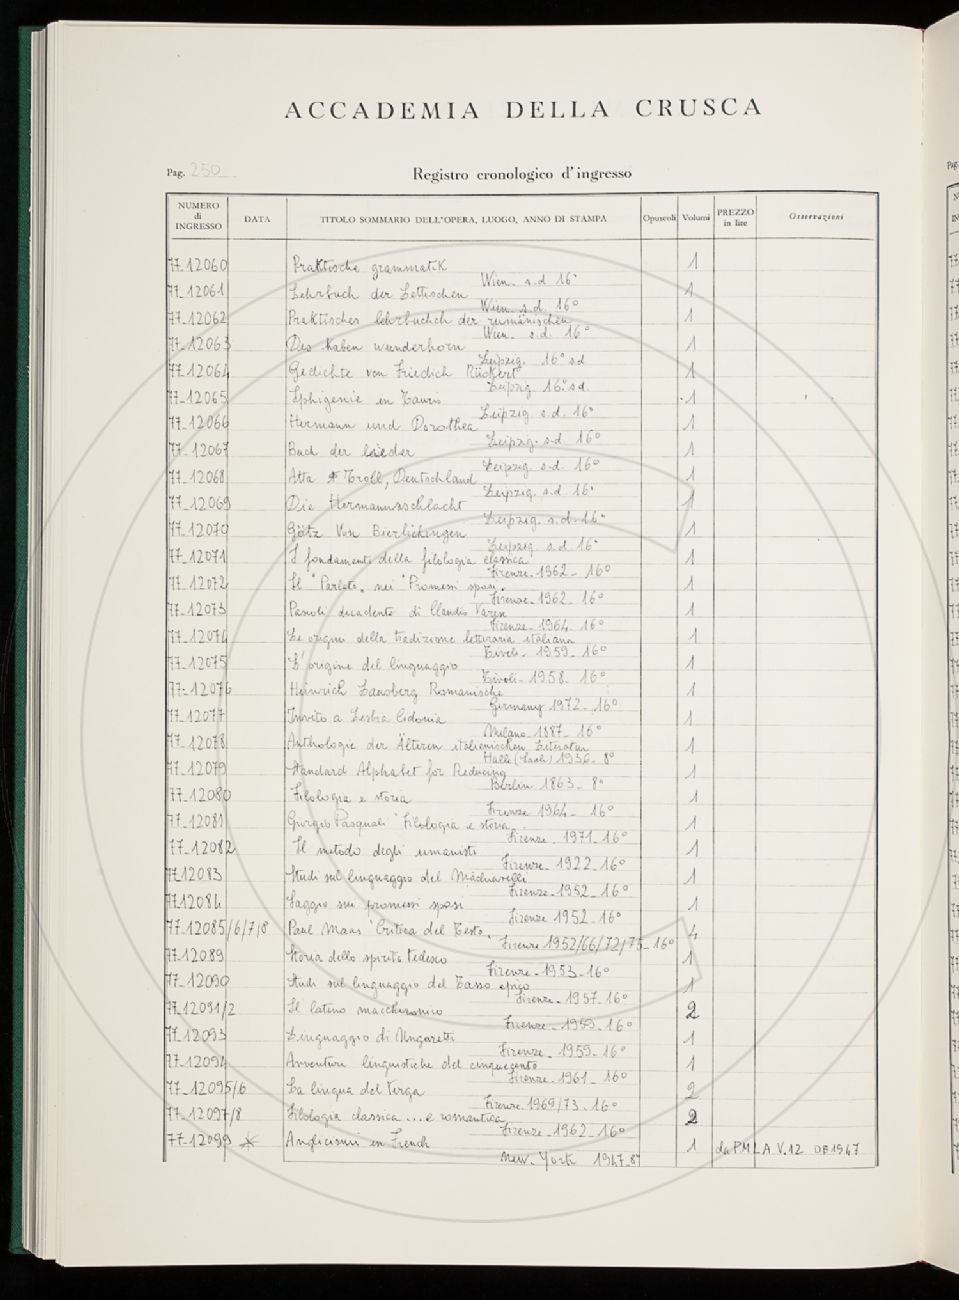 ACCADEMIA DELLA CRUSCA
Pag. 250
Registro cronologico d'ingresso
NUMERO di INGRESSO DATA TITOLO SOMMARIO DELL'OPERA, LUOGO, ANNO DI STAMPA Opuscoli Volumi PREZZO in lire Osservazioni
77-12060 Praktische grammatik 1
Wien. s.d 16°
77-12061 Lehrbuch der Lettischen 1
Wien. s.d. 16°
77-12062 Praktisches lehrbuchch der rumänischen 1
Wien. s.d. 16°
77-12063 Des Knaben wunderhorn 1
Leipzig. 16° s.d
77-12064 Gedichte von Friedich Rückert 1
Leipzig 16° s.d.
77-12065 Iphigenie in Tauris 1
Leipzig s.d. 16°
77-12066 Hermann und Dorothea 1
Leipzig. s.d 16°
77-12067 Buch der lieder 1
Leipzig. s.d. 16°
77-12068 Atta Troll, Deutschland 1
Leipzig. s.d 16°
77-12069 Die Hermannsschlacht 1
Leipzig. s.d. 16°
77-12070 Götz Von Berlichingen 1
Leipzig s.d 16°
77-12071 I fondamenti della filologia classica 1
Firenze. 1962- 16°
77-12072 Il "Parlato" nei "Promessi sposi" 1
Firenze. 1962- 16°
77-12073 Pascoli decadente di Claudio Varese 1
Firenze. 1964- 16°
77-12074 Le origini della tradizione letteraria italiana 1
Tivoli- 1959- 16°
77-12075 L'origine del linguaggio 1
Tivoli- 1958- 16°
77-12076 Heinrich Lausberg Romanische 1
Germany 1972- 16°
77-12077 Invito a Lesbia Cidonia 1
Milano 1887- 16°
77-12078 Anthologie der Älteren italienischen Literatur 1
Halle (Saale) 1936- 8°
77-12079 Standard Alphabet for Reducing 1
Berlin 1863- 8°
77-12080 Filologia e storia 1
Firenze 1964- 16°
77-12081 Giorgio Pasquali "Filologia e storia" 1
Firenze- 1971- 16°
77-12082 Il metodo degli umanisti 1
Firenze- 1922- 16°
77-12083 Studi sul linguaggio del Machiavelli 1
Firenze- 1952- 16°
77-12084 Saggio sui promessi sposi 1
Firenze 1952- 16°
77-12085/6/7/8 Paul Maas "Critica del Testo" 4
Firenze 1952/66/72/75- 16°
77-12089 Storia dello spirito tedesco 1
Firenze- 1953- 16°
77-12090 Studi sul linguaggio del Tasso epico 1
Firenze- 1957- 16°
77-12091/2 Il latino maccheronico 2
Firenze- 1959- 16°
77-12093 Linguaggio di Ungaretti 1
Firenze- 1959- 16°
77-12094 Avventure linguistiche del cinquecento 1
Firenze- 1961- 16°
77-12095/6 La lingua del Verga 2
Firenze 1969/73- 16°
77-12097/8 Filologia classica ... e romantica 2
Firenze- 1962- 16°
77-12099 * Anglicismi in French 1 da PMLA V.12 DE 1947
New-York 1947-8°